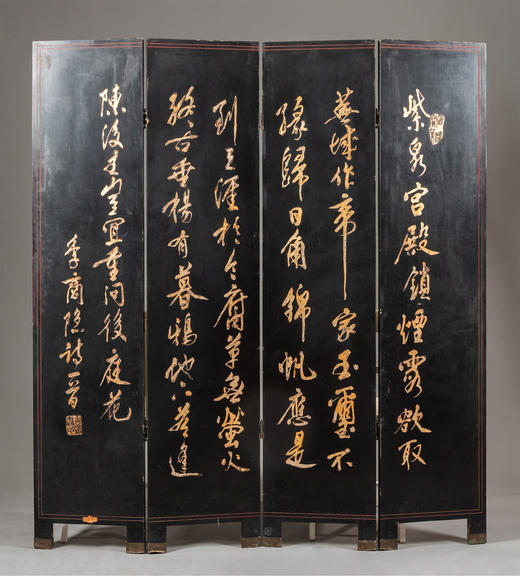 紫泉宮殿鎖煙霞欲取
蕪城作帝家玉璽不
緣歸日角錦帆應是
到天涯於今腐草無螢火
終古垂楊有暮鴉地下若逢
陳後主豈宜重問後庭花
李商隱詩一首